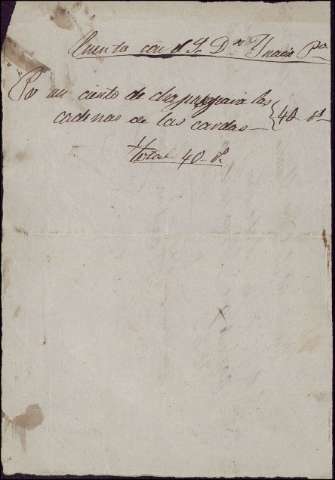 Cuenta con el S. Dn Ynacio Pa
Por un ciento de chapas para las
cardinas de las cardas { 40 rs
Total 40 rs